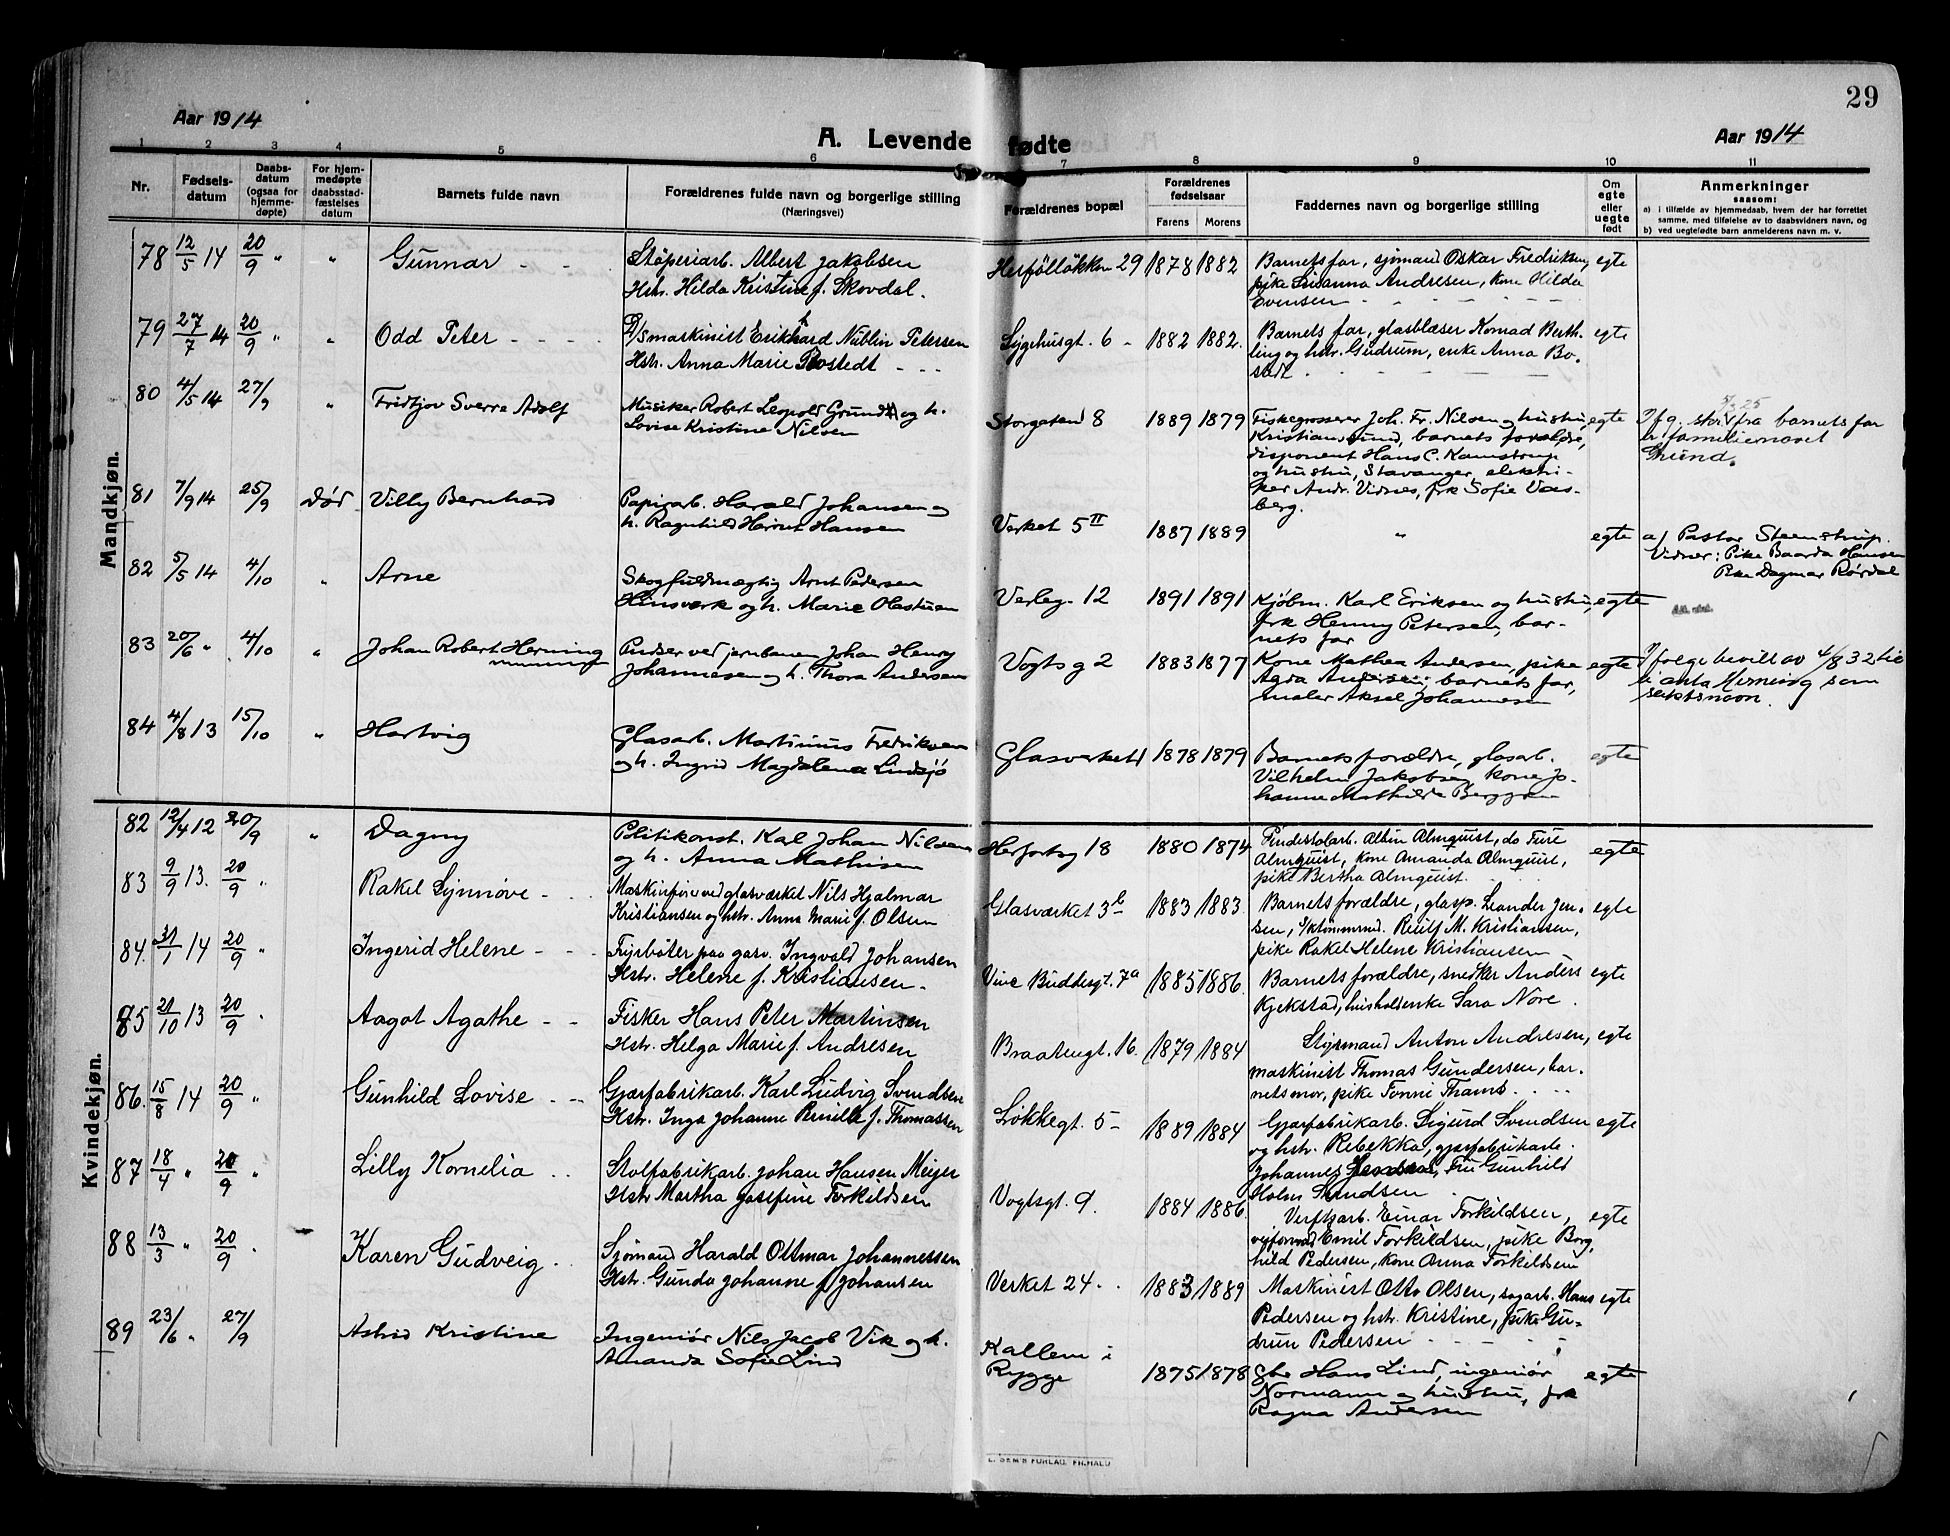 29
Aar 1914
A. Levende fødte
Aar 1914
1 2 3 4 5 6 7 8 9 10 11
Nr.
Fødsels-
datum
Daabs-
datum
(ogsaa for
hjemme-
døpte)
For hjem-
medøpte
daabsstad-
fæstelses
datum
Barnets fulde navn
Forældrenes fulde navn og borgerlige stilling
(Næringsvei)
Forældrenes bopæl
Forældrenes
fødselsaar
Farens Morens
Faddernes navn og borgerlige stilling
Om
egte
eller
uegte
født
Anmerkninger
saasom:
a) i tilfælde av hjemmedaab, hvem der har forrettet
samme, med tilføielse av to daabsvidners navn, og
b) ved uegtefødte barn anmelderens navn m. v.
Mandkjøn.
78 12/5 14 20/9 " " Gunnar - - -
Støperiarb. Albert Jakobsen
Hstr. Hilda Kristine f. Skovdal.
Herfølløkken 29 1878 1882
Barnets far, sjømand Oskar Fredriksen, egte
pike Susanna Andresen, kone Hilda
Evensen - - - - -
79 27/7 14 20/9 " " Odd Peter - - - -
D/Smaskinist Erikhard Nublin Petersen
Hstr. Anna Marie Bostedt - - -
Sygehusgt. 6 - 1882 1882.
Barnets far, glasblæser Konrad Berth- egte
ling og hstr. Gudrum, enke Anna Bo-
stedt. - - - - -
80 4/5 14 27/9 " Fridtjov Sverre Adolf
Musiker Robert Leopold Grundt og h.
Lovise Kristine Nilsen
Storgaten 8 1889 1879
Fiskegrosserer Joh. Fr. Nilsen og hustru, egte
Kristiansund, barnets forældre,
disponent Hans C. Kamstrup
og hustru, Stavanger, elektri-
ker Andr. Vidnes, frk Sofie Vas-
berg.
Ifg. skr. fra barnets far
er familienavnet
Grund.
81 7/9 14 25/9 Død Villy Bernhard
Papirarb. Harald Johansen og
h. Ragnhild Harriet Hansen
Verket 5 II 1887 1889 " egte
a) Pastor Steenstrup.
Vidner: Pike Baarda Hansen
Pike Dagmar Rørdal
82 5/5 14 4/10 " Arne
Skogfuldmægtig Arnt Pedersen
Hinsverk og h. Marie Olastuen
Verleg. 12 1891 1891
Kjøbm. Karl Eriksen og hustru, egte
frk Henny Petersen, bar-
nets far
83 20/6 " 4/10 " Johan Robert Herning
Pudser ved jernbanen Johan Henry
Johannesen og h. Thora Andersen
Vogtsg 2 1883 1877
Kone Mathea Andersen, pike egte
Agda Andersen, barnets far,
maler Aksel Johannesen
Ifølge bevill av 4/8 32 til
at anta Herning som
slektsnavn.
84 4/8 13 15/10 " Hartvig
Glasarb. Martinius Fredriksen
og h. Ingrid Magdalena Lindsjö
Glasverket 1878 1879
Barnets forældre, glasarb. egte
Vilhelm Jakobsen, kone Jo-
hanne Mathilde Berggren
Kvindekjøn.
82 12/4 12 20/9 " Dagny
Politikonst. Karl Johan Nilsen
og h. Anna Mathisen
Herfortsg 18 1880 1874
Pindestolarb. Albin Almquist, do Ture egte
Almquist, kone Amanda Almquist,
pike Bertha Almquist.
83 9/9 13. 20/9 " Rakel Synnøve - - -
Maskinfører ved glasværket Nils Hjalmar
Kristiansen og hstr. Anna Marie f. Olsen
Glasværket 3b 1883 1883.
Barnets forældre, glasp. Leander Jen- egte
sen, Rudolf M. Kristiansen,
pike Rakel Helene Kristiansen
84. 31/1 14 20/9 " Ingerid Helene - - -
Fyrbøter paa gasv. Ingvald Johansen
Hstr. Helene f. Kristiansen.
Vine Buddesgt. 7a 1885 1886.
Barnets forældre, snedker Anders egte
Kjekstad, husholderske Sara Nore.
85 21/10 13 20/9 . Aagot Agathe - - -
Fisker Hans Peter Martinsen
Hstr. Helga Marie f. Andresen
Braatengt. 16. 1879 1884
Styrmand Anton Andresen, egte
maskinist Thomas Gundersen, bar-
nets mor, pike Fanni Thams. - - -
86. 15/8 14 20/9 " Gunhild Lovise - - -
Gjærfabrikarb. Karl Ludvig Svendsen
Hstr. Inga Johanne Pernille f. Thomassen
Løkkegt. 5 - 1889 1884
Gjærfabrikarb. Sigurd Svendsen egte
og hstr. Rebekka, gjærfabrikarb.
Johannes Fru Gunhild
Holm Svendsen
87 18/4 " 20/9 " Lilly Kornelia . .
Stolfabrikarb. Johan Hansen Meijer
Hstr Martha Josefine Torkildsen
Vogtsgt. 9. 1884 1886
Verftsarb. Einar Torkildsen, egte
Emil Torkildsen, pike Borg-
hild Pedersen, kone Anna Torkildsen
88 13/3 " 20/9 . Karen Gudveig . .
Sjømand Harald Ottmar Johannessen
Hstr. Gunda Johanne f. Johansen
Verket 24 . . 1883 1889
Maskinist Otto Olsen, sagarb. Hans egte
Pedersen og hstr. Kristine, pike Gu-
drun Pedersen - - -
89 23/6 " 27/9 Astrid Kristine
Ingeniør Nils Jacob Vik og h.
Amanda Sofie Lind
Kallem i
Rygge
1875 1878
Gbr Hans Lind, ingeniør egte
Normann og hustru, frk
Ragna Andersen
E. SEM'S FORLAG, FR.HALD